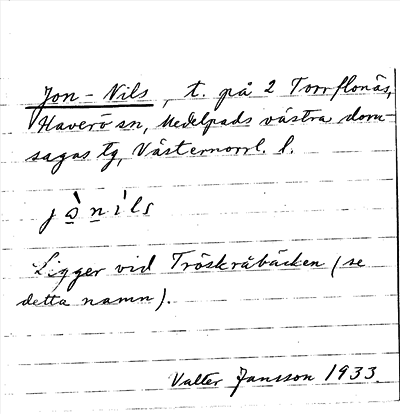 Jon-Nils, t. på 2 Torrflonäs,
Haverö sn, Medelpads västra dom-
sagas tg, Västernorrl. l.
jò̱ṉìls
Ligger vid Tröskråbäcken (se
detta namn).
Valter Jansson 1933.